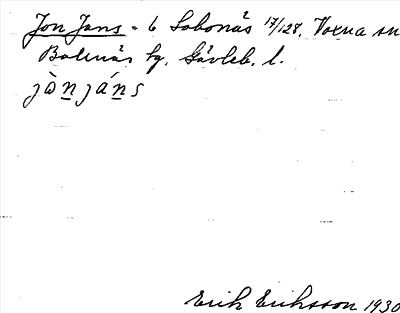 Jon Jans - 6 Sobonäs 17/128, Voxna sn
Bolnäs kg. Gävleb. l.
jònjáns
Erik Eriksson 1930